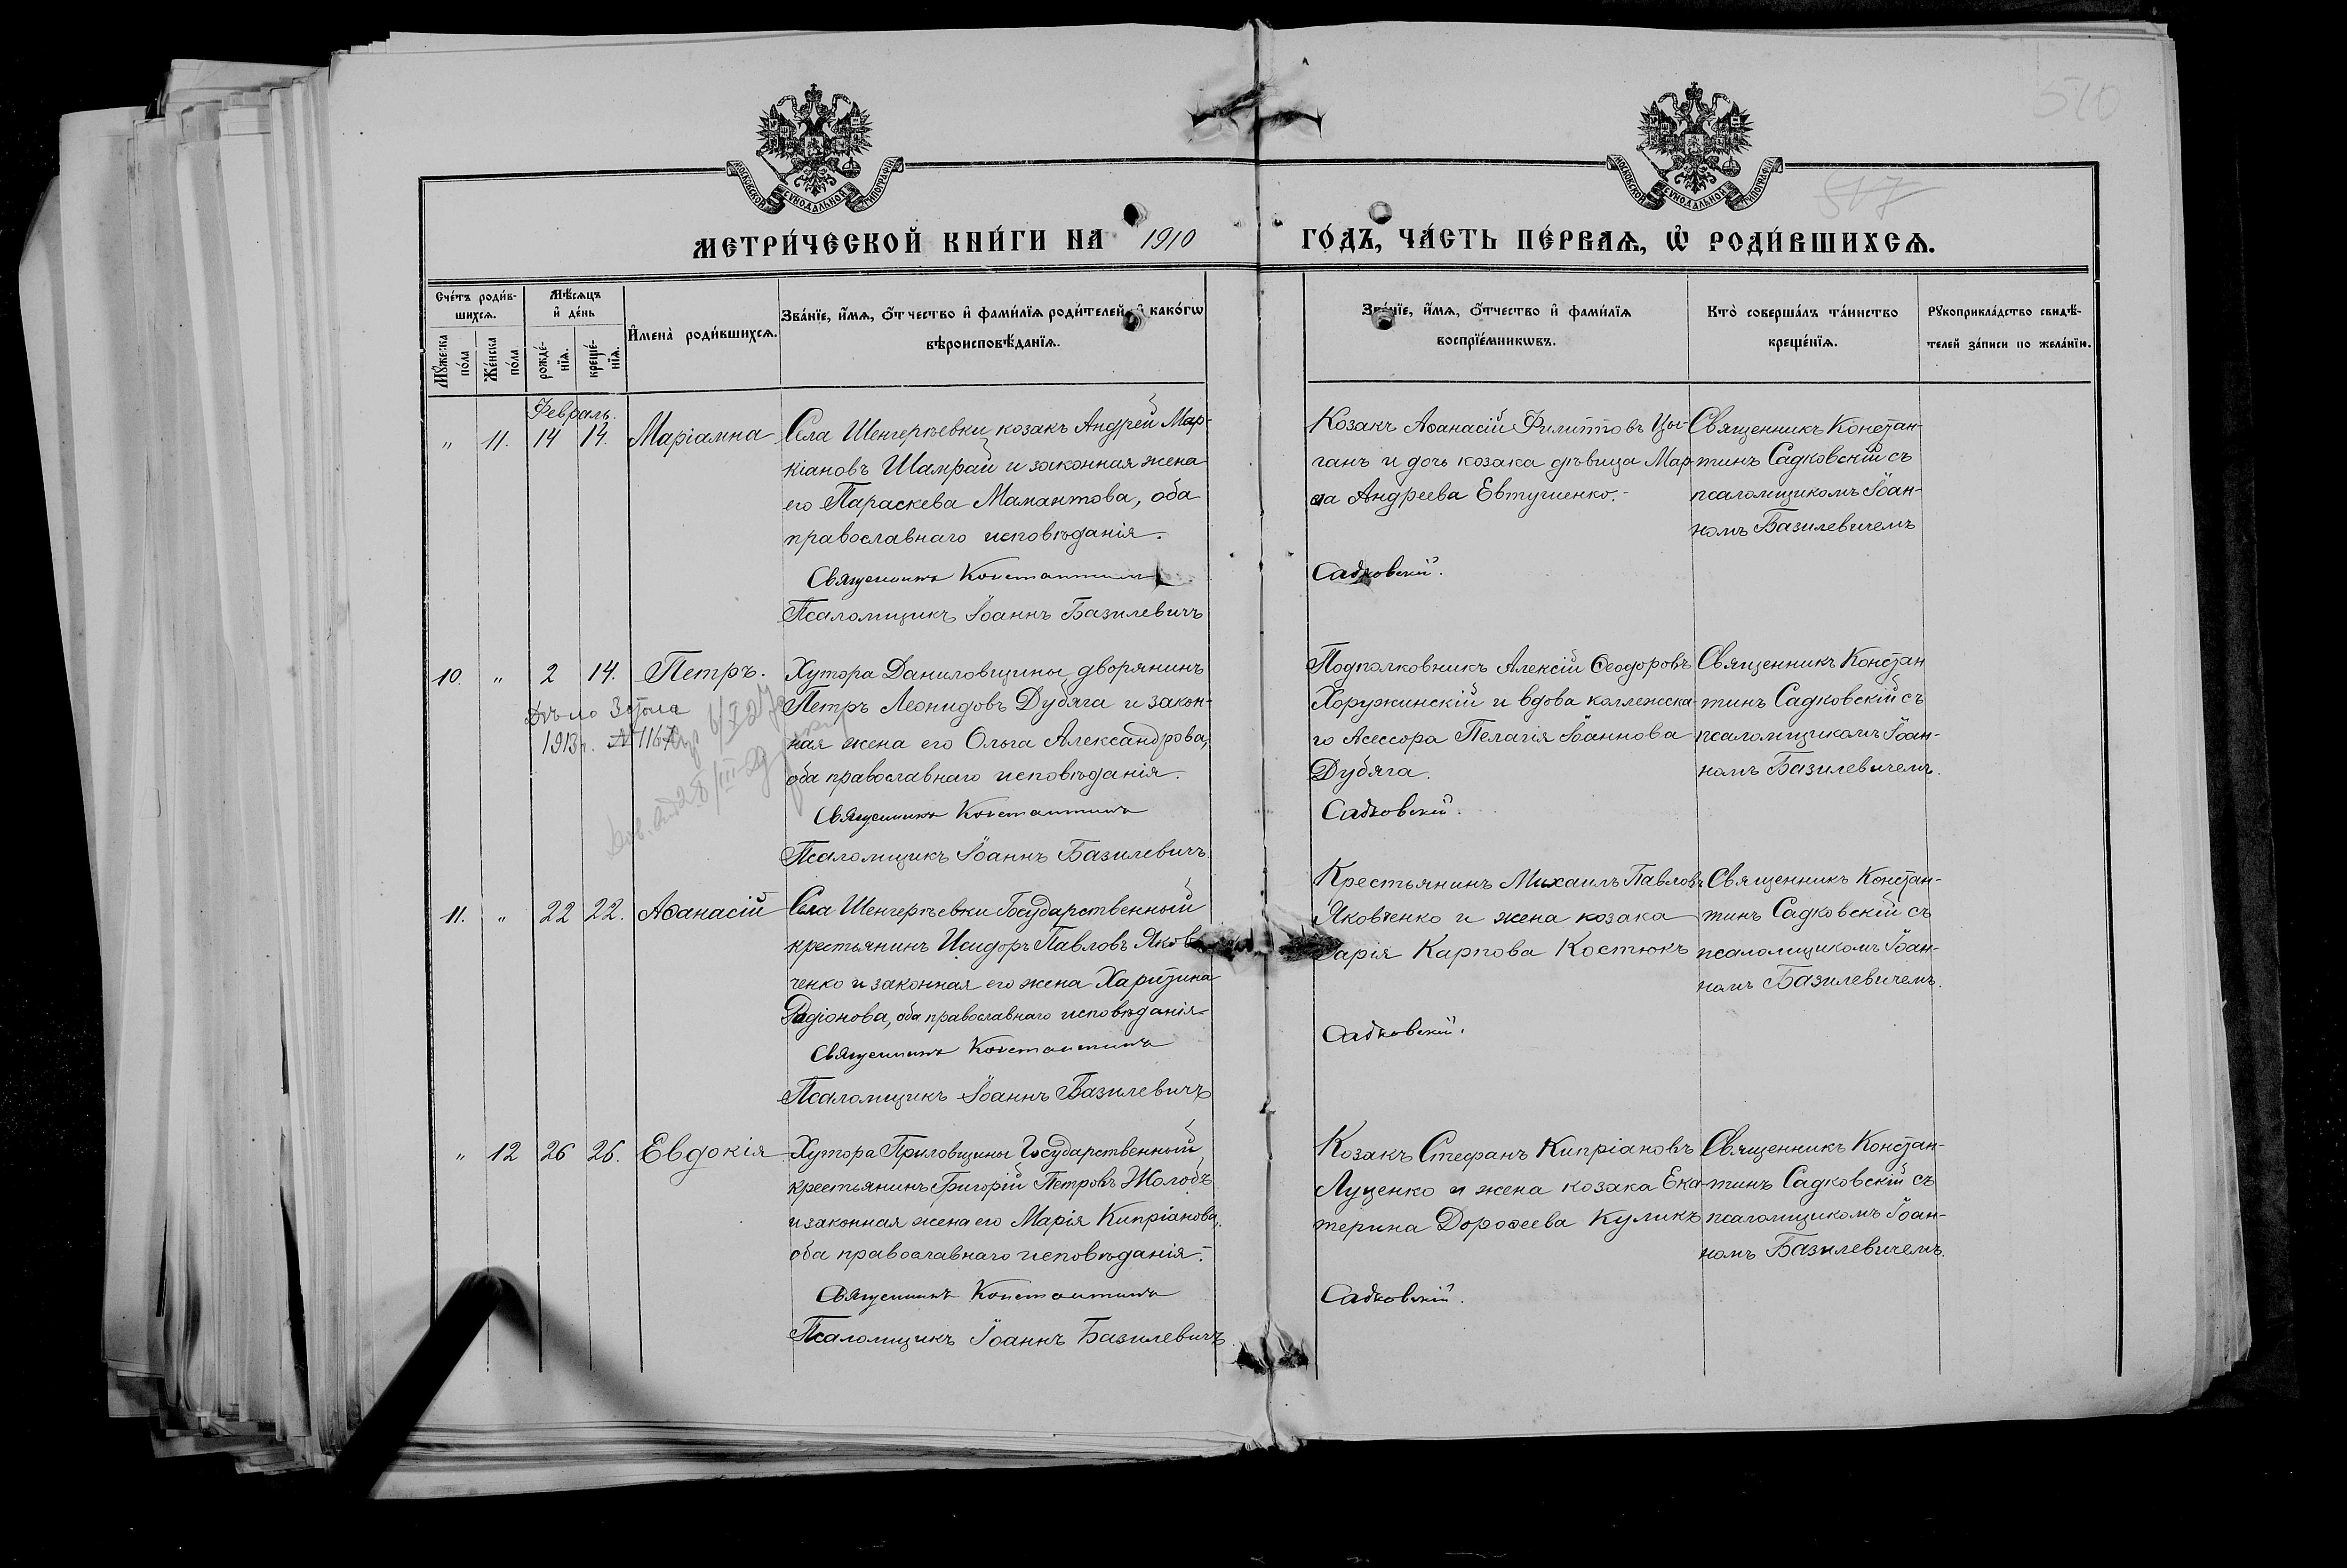 510
517
МОСКОВСКОЙ СУНОДАЛЬНОЙ ТИПОГРАФІИ
МОСКОВСКОЙ СУНОДАЛЬНОЙ ТИПОГРАФІИ
МЕТРИ́ЧЕСКОЙ КНИ́ГИ НА 1910 ГО́ДЪ, ЧА́СТЬ ПЕ́РВАѦ, Ѡ РОДИ́ВШИХСѦ.
Сче́тъ роди́в-
шихсѧ.
Мꙋ́жеска по́ла
Же́нска по́ла
Мѣ́сѧцъ
и҆ де́нь
рожде́-
нїѧ.
креще́-
нїѧ.
И҆мена̀ роди́вшихсѧ.
Зва́нїе, и҆́мѧ, ѻ҆́тчество и҆ фами́лїѧ роди́телей, и҆ како́гѡ
вѣроисповѣ́данїѧ.
Зва́нїе, и҆́мѧ, ѻ҆́тчество и҆ фами́лїѧ
воспрїе́мникѡвъ.
Кто̀ соверша́лъ та́инство
креще́нїѧ.
Рꙋкоприкла́дство свидѣ́-
телей за́писи по жела́нїю.
Февраль.
" 11. 14 14. Маріамна
Села Шенгеріевки козакъ Андрей Мар-
кіановъ Шамрай и законная жена
его Параскева Мамантова, оба
православнаго исповѣданія.
Священникъ Константинъ
Псаломщикъ Іоаннъ Базилевичъ
Козакъ Аѳанасій Филипповъ Цы-
ганъ и дочь козака дѣвица Мар-
ѳа Андреева Евтушенко.-
Садковскій.
Священникъ Констан-
тинъ Садковскій съ
псаломщикомъ Іоан-
номъ Базилевичемъ
10. " 2 14. Петръ.
Дѣло 3 стола
1913 г. № 1167
Хутора Даниловщины дворянинъ
Петръ Леонидовъ Дубяга и закон-
ная жена его Ольга Александрова,
оба православнаго исповѣданія.
Священникъ Константинъ
Псаломщикъ Іоаннъ Базилевичъ.
Подполковникъ Алексій Ѳеодоровъ
Хоружинскій и вдова коллежска-
го Асессора Пелагія Іоаннова
Дубяга.
Садковскій.
Священникъ Констан
тинъ Садковскій съ
псаломщикомъ Іоан-
номъ Базилевичемъ.
11. " 22 22. Аѳанасій
Села Шенгеріевки Государственный
крестьянинъ Исидоръ Павловъ Яков
ченко и законная его жена Харитина
Родіонова, оба православнаго исповѣданія
Священникъ Константинъ
Псаломщикъ Іоаннъ Базилевичъ
Крестьянинъ Михаилъ Павловъ
Яковченко и жена козака
Дарія Карпова Костюкъ
Садковскій.
Священникъ Констан-
тинъ Садковскій съ
псаломщикомъ Іоан-
номъ Базилевичемъ.
" 12 26 26. Евдокія
Хутора Приловщины Государственный
крестьянинъ Григорій Петровъ Жолобъ
и законная жена его Марія Кипріанова,
оба православнаго исповѣданія.-
Священникъ Константинъ
Псаломщикъ Іоаннъ Базилевичъ
Козакъ Стефанъ Кипріановъ
Луценко и жена козака Ека-
терина Дороѳеева Куликъ
Садковскій.
Священникъ Констан-
тинъ Садковскій съ
псаломщикомъ Іоан-
номъ Базилевичемъ.